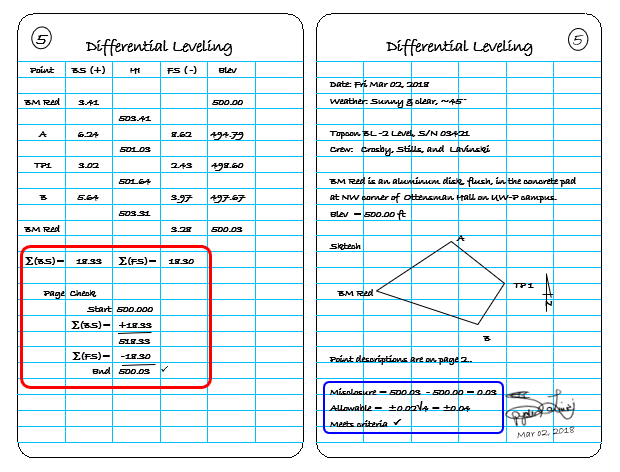 5
Differential Leveling
Point BS (+) HI FS (-) Elev
BM Red 3.41 500.00
503.41
A 6.24 8.62 494.79
501.03
TP1 3.02 2.43 498.60
501.64
B 5.64 3.97 497.67
503.31
BM Red 3.28 500.03
Σ(BS)= 18.33 Σ(FS)= 18.30
Page Check
Start 500.000
Σ(BS)= +18.33
518.33
Σ(FS)= -18.30
End 500.03 ✓
5
Differential Leveling
Date: Fri Mar 02, 2018
Weather: Sunny & clear, ~45°
Topcon BL-2 Level, S/N 03421
Crew: Crosby, Stills, and Lavinski
BM Red is an aluminum disk, flush, in the concrete pad
at NW corner of Ottensman Hall on UW-P campus.
Elev = 500.00 ft
Sktech
A
BM Red
TP1
N
B
Point descriptions are on page 2.
Misclosure = 500.03 - 500.00 = 0.03
Allowable = ±0.02√4 = ±0.04
Meets criteria ✓
Mar 02, 2018